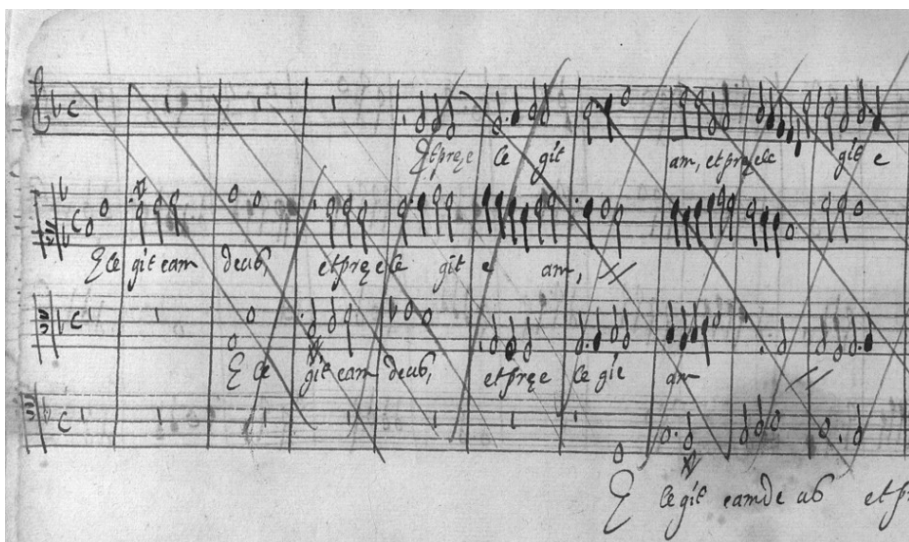 Et pręe le git am, et pręele git e
E le git eam deus, et pręe le git e am,
E le git eam deus, et pręe le gie am
E le git eam de us et p